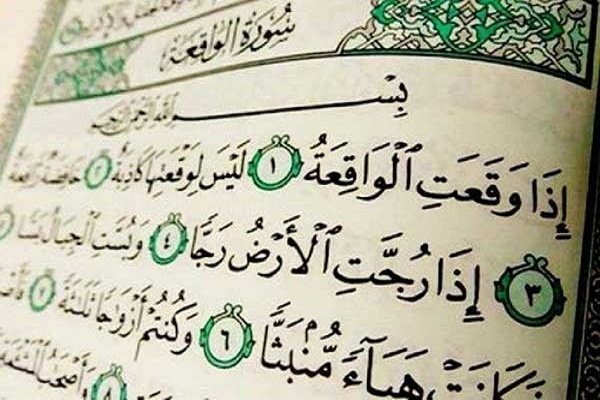 سُورَةُ الوَاقِعَة
بِسْمِ اللَّهِ الرَّحْمَٰنِ الرَّحِيمِ
إِذَا وَقَعَتِ ٱلْوَاقِعَةُ ١ لَيْسَ لِوَقْعَتِهَا كَاذِبَةٌ ٢ خَافِضَةٌ رَّافِعَةٌ
٣ إِذَا رُجَّتِ ٱلْأَرْضُ رَجًّا ٤ وَبُسَّتِ ٱلْجِبَالُ بَسًّا
فَكَانَتْ هَبَآءً مُّنۢبَثًّا ٦ وَكُنتُمْ أَزْوَٰجًا ثَلَٰثَةً ٧